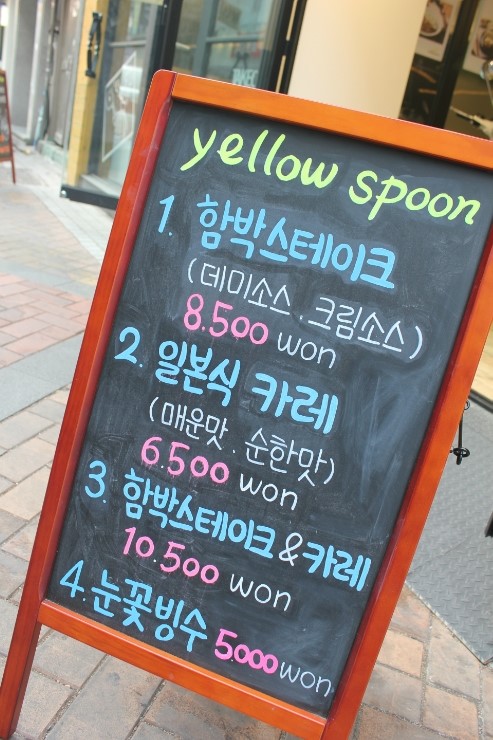 yellow spoon
1. 함박스테이크
(데미소스 . 크림소스)
8.500 won
2. 일본식 카레
(매운맛 . 순한맛)
6.500 won
3. 함박스테이크 & 카레
10.500 won
4. 눈꽃빙수 5.000 won